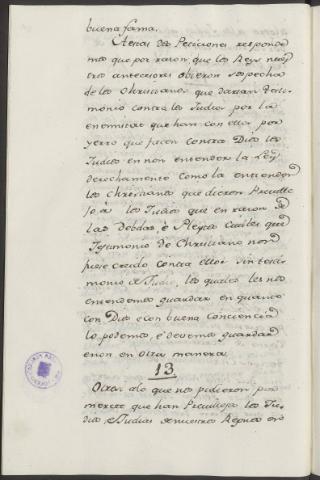 buena fama.
A estas dos Peticiones responde
mos que por razon, que los Reys nuest
tros antecesores obieron sospecha
de los Christianos que darian Testi
monio contra los Judios por la
enemistat que han con ellos por
yerro que facen contra Dios los
Judios en non entender la Ley
derechamente como la entienden
los Christianos que dieron Preville
jo à los Judios que en razon de
las debdas, è Pleytos Civiles que
Testimonio de Christiano non
fuese creido contra ellos sin testi
monio de Judio, los quales les nos
entendemos guardar en quanto
con Dios è con buena conciencia
lo podemos, è devemos guardar
è non en otra manera
13
Otrosi alo que nos pidieron por
merced que han Previllejos los Ju-
dios è Judias de nuestros Regnos en